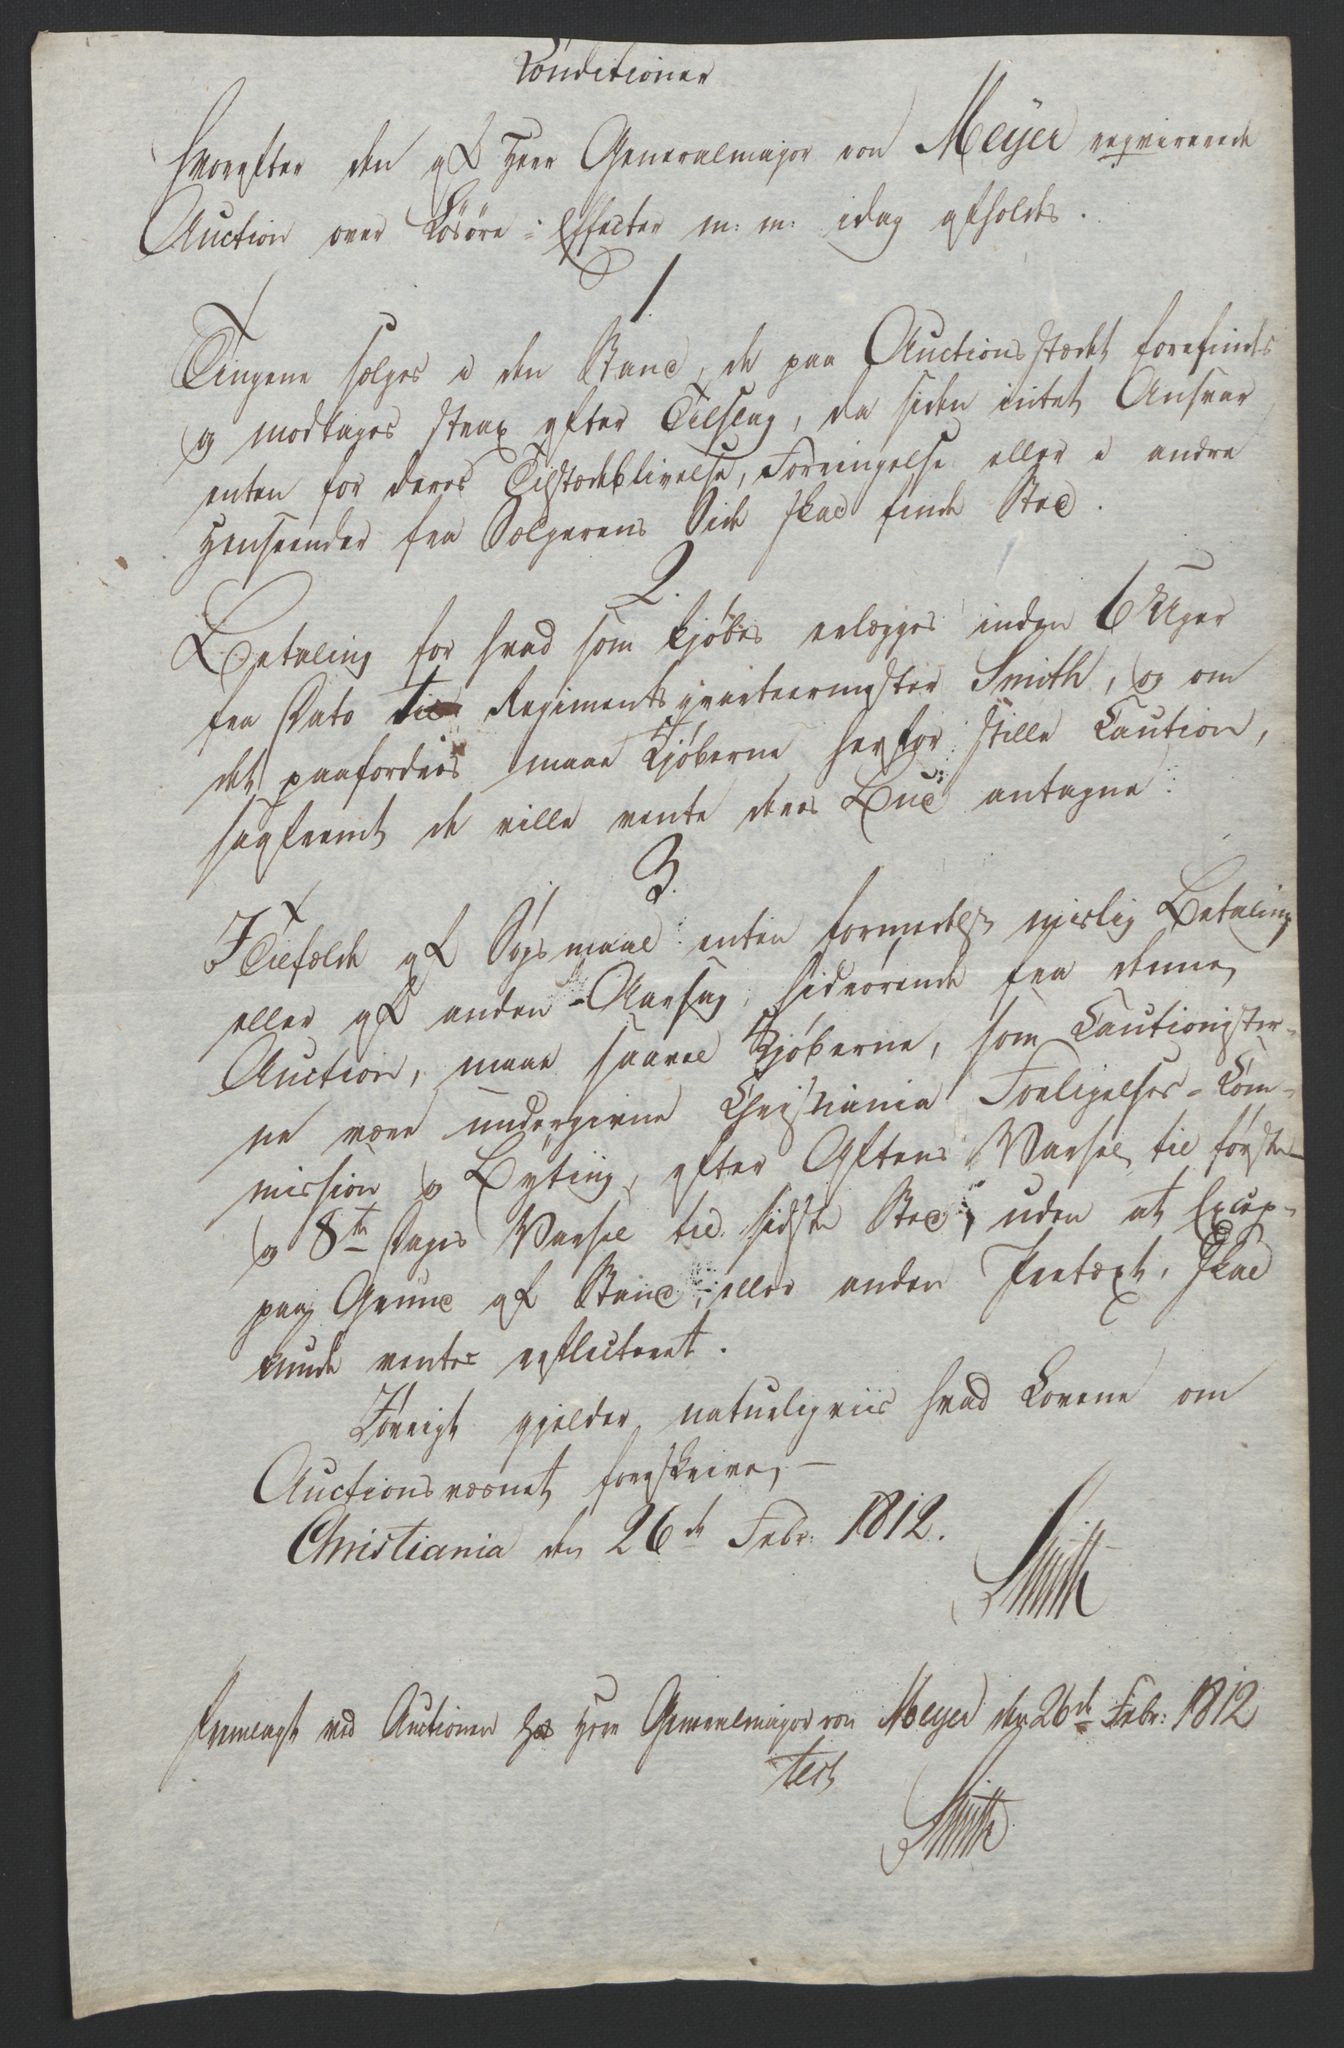 Conditioner
hvorefter den af Herr Generalmajor von Meyer reqvirerede
Auction over Løsøre-Effecter m: m: idag afholdes.
1
Tingene sælges i den Stand, de paa Auctionsstædet forefindes
og modtages strax efter Tilslag, da siden intet Ansvar
enten for deres Tilstædeblivelse, Forringelse eller i andre
Henseender fra Sælgerens Side skal finde Sted.
2.
Betaling for hvad som kjøbes erlægges inden 6 Uger
fra Dato til Regimentsqvarteermester Smith, og om
det paafordres maae Kjøberne herfor stille Caution,
saafremt de ville vente deres Bud antagne.
3.
I Tilfælde af Søgsmaal enten formedelst mislig Betaling
eller af anden Aarsag, hidrørende fra denne
Auction, maae saavel Kjøberne, som Cautionister-
ne være undergivne Christiania Forligelses-Com-
mission og Byting, efter Aftens Varsel til første
og 8te Dages Varsel til sidste Sted, uden at Excep-
paa Grund af Stand, eller anden Prætext, skal
kunde ventes reflecteret.
Iøvrigt gjelder naturligviis hvad Lovene om
Auctionsvæsnet foreskrive, -
Christiania den 26de Febr: 1812.
Smith
Fremlagt ved Auctionen hos Herr Generalmajor von Meyer den 26de Febr: 1812
test
Smith